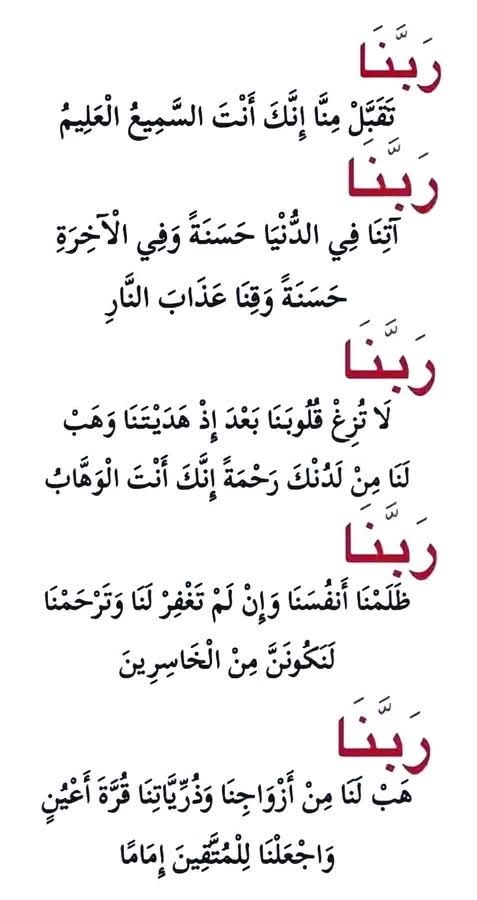 رَبَّنَا
تَقَبَّلْ مِنَّا إِنَّكَ أَنْتَ السَّمِيعُ الْعَلِيمُ
رَبَّنَا
آتِنَا فِي الدُّنْيَا حَسَنَةً وَفِي الْآخِرَةِ
حَسَنَةً وَقِنَا عَذَابَ النَّارِ
رَبَّنَا
لَا تُزِغْ قُلُوبَنَا بَعْدَ إِذْ هَدَيْتَنَا وَهَبْ
لَنَا مِنْ لَدُنْكَ رَحْمَةً إِنَّكَ أَنْتَ الْوَهَّابُ
رَبَّنَا
ظَلَمْنَا أَنفُسَنَا وَإِنْ لَمْ تَغْفِرْ لَنَا وَتَرْحَمْنَا
لَنَكُونَنَّ مِنْ الْخَاسِرِينَ
رَبَّنَا
هَبْ لَنَا مِنْ أَزْوَاجِنَا وَذُرِّيَّاتِنَا قُرَّةَ أَعْيُنٍ
وَاجْعَلْنَا لِلْمُتَّقِينَ إِمَامًا